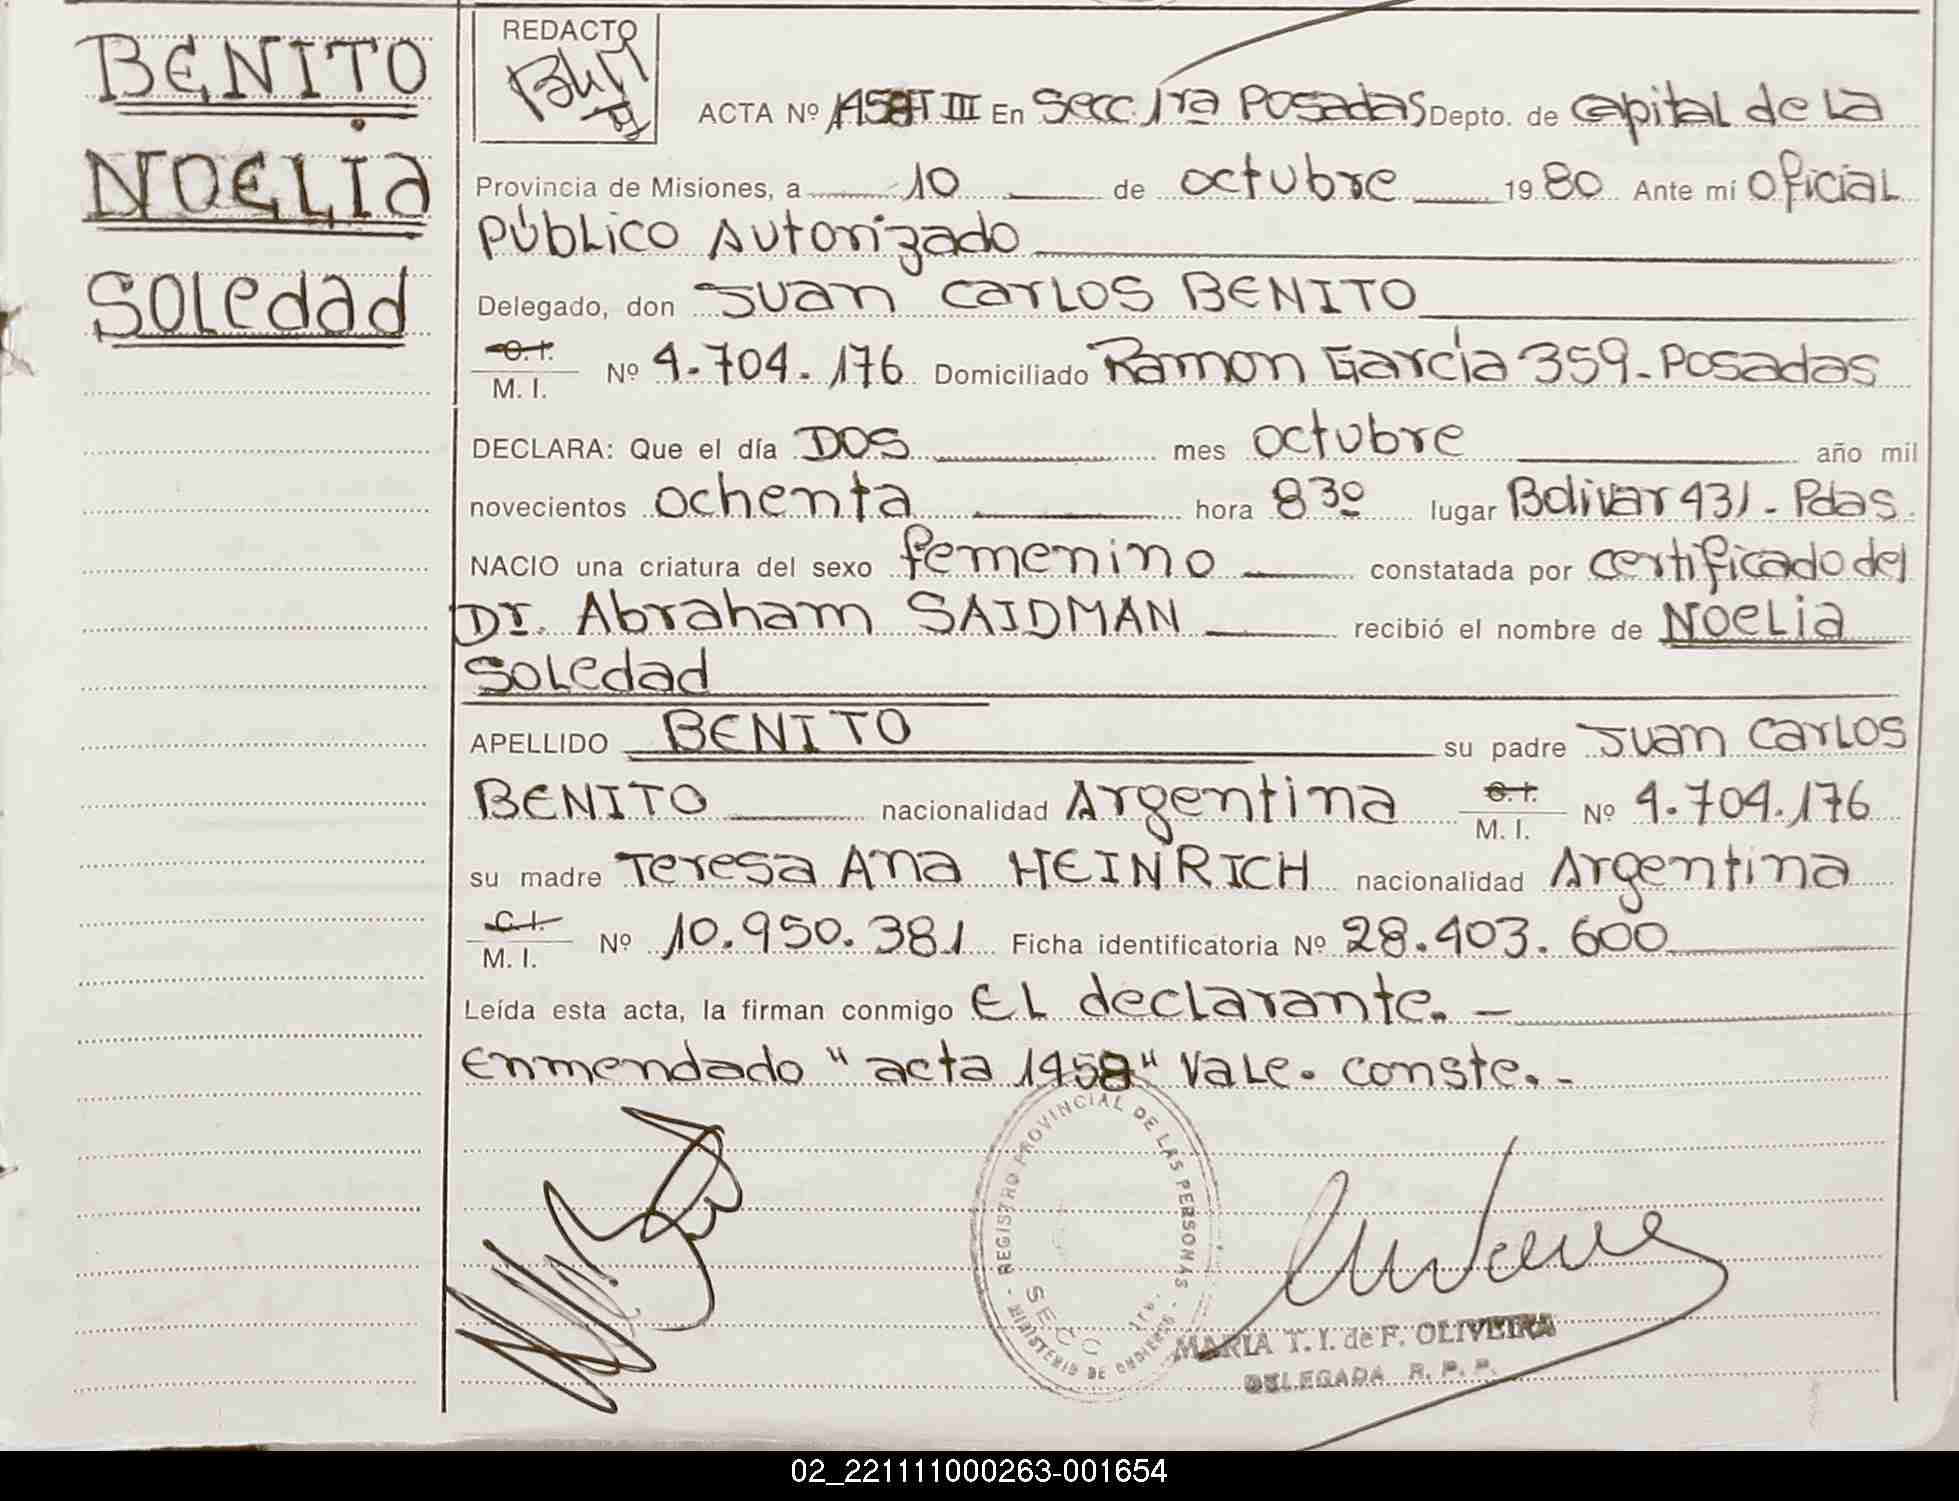 BENITO
NOELIA
Soledad
REDACTO
ACTA Nº 1458 T III En Secc. 1ra Posadas Depto. de Capital de La
Provincia de Misiones, a 10 de octubre 1980 Ante mí Oficial
Público Autorizado
Delegado, don Juan Carlos BENITO
C.I.
M. I. Nº 4.704.176 Domiciliado Ramon García 359-Posadas
DECLARA: Que el día DOS mes octubre año mil
novecientos ochenta hora 830 lugar Bolivar 431-Pdas.
NACIO una criatura del sexo femenino constatada por certificado del
Dr. Abraham SAIDMAN recibió el nombre de Noelia
Soledad
APELLIDO BENITO su padre Juan Carlos
BENITO nacionalidad Argentina C.I. M. I. Nº 4.704.176
su madre Teresa Ana HEINRICH nacionalidad Argentina
C.I.
M. I. Nº 10.950.381 Ficha identificatoria Nº 28.403.600
Leída esta acta, la firman conmigo El declarante.-
Enmendado "acta 1458" Vale. Conste.-
REGISTRO PROVINCIAL DE LAS PERSONAS
SECC 1ra.
MINISTERIO DE GOBIERNO
MARIA T. I. de F. OLIVEIRA
DELEGADA R. P. P.
02_221111000263-001654